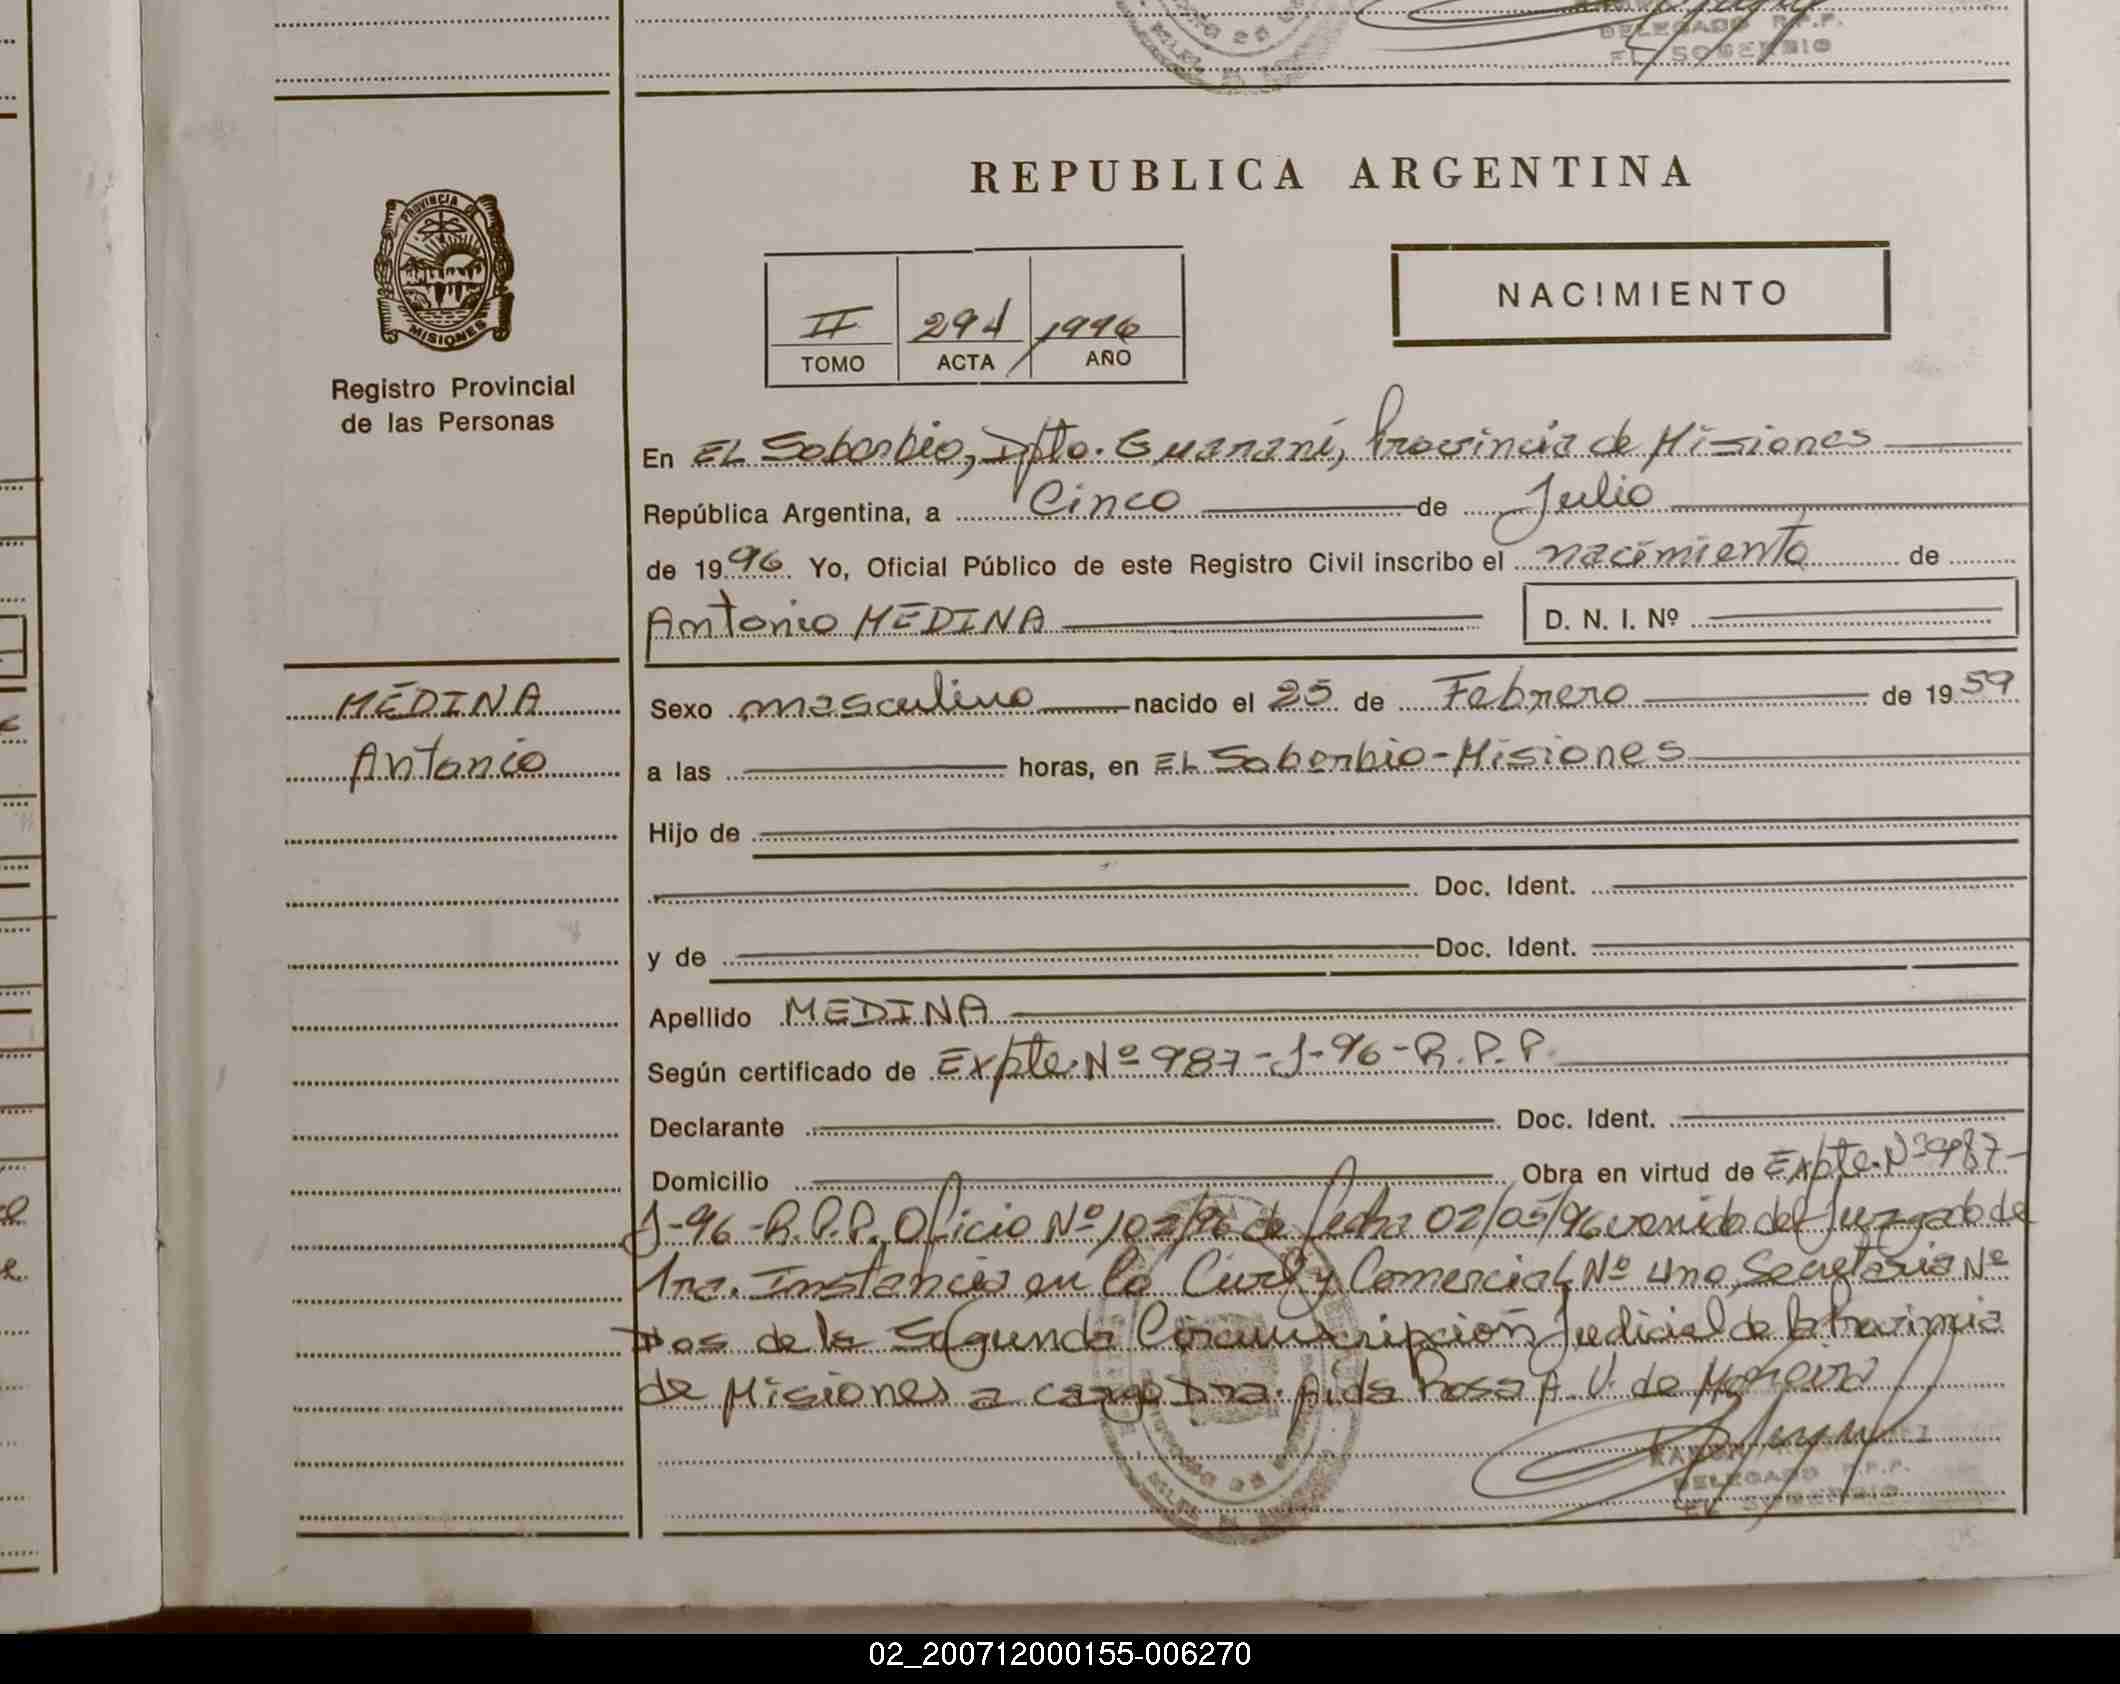 DELEGADO R.P.P.
EL SOBERBIO
REPUBLICA ARGENTINA
PROVINCIA DE
MISIONES
Registro Provincial
de las Personas
II 294 1996
TOMO ACTA AÑO
NACIMIENTO
En EL Soberbio, Dpto. Guaraní, Provincia de Misiones
República Argentina, a Cinco de Julio
de 1996 Yo, Oficial Público de este Registro Civil inscribo el nacimiento de
Antonio MEDINA D. N. I. Nº
MEDINA
Antonio
Sexo masculino nacido el 25 de Febrero de 1959
a las horas, en EL Soberbio-Misiones
Hijo de
Doc. Ident.
y de Doc. Ident.
Apellido MEDINA
Según certificado de Expte. Nº 987-J-96-R.P.P.
Declarante Doc. Ident.
Domicilio Obra en virtud de Expte. Nº 987-
J-96-R.P.P. Oficio Nº 102/96 de fecha 02/05/96 venido del Juzgado de
1ra. Instancia en lo Civil y Comercial Nº uno, Secretaria Nº
Dos de la Segunda Circunscripción Judicial de la Provincia
de Misiones a cargo Dra. Aida Rosa A. V. de Moreira
DELEGADO R.P.P.
EL SOBERBIO
02_200712000155-006270